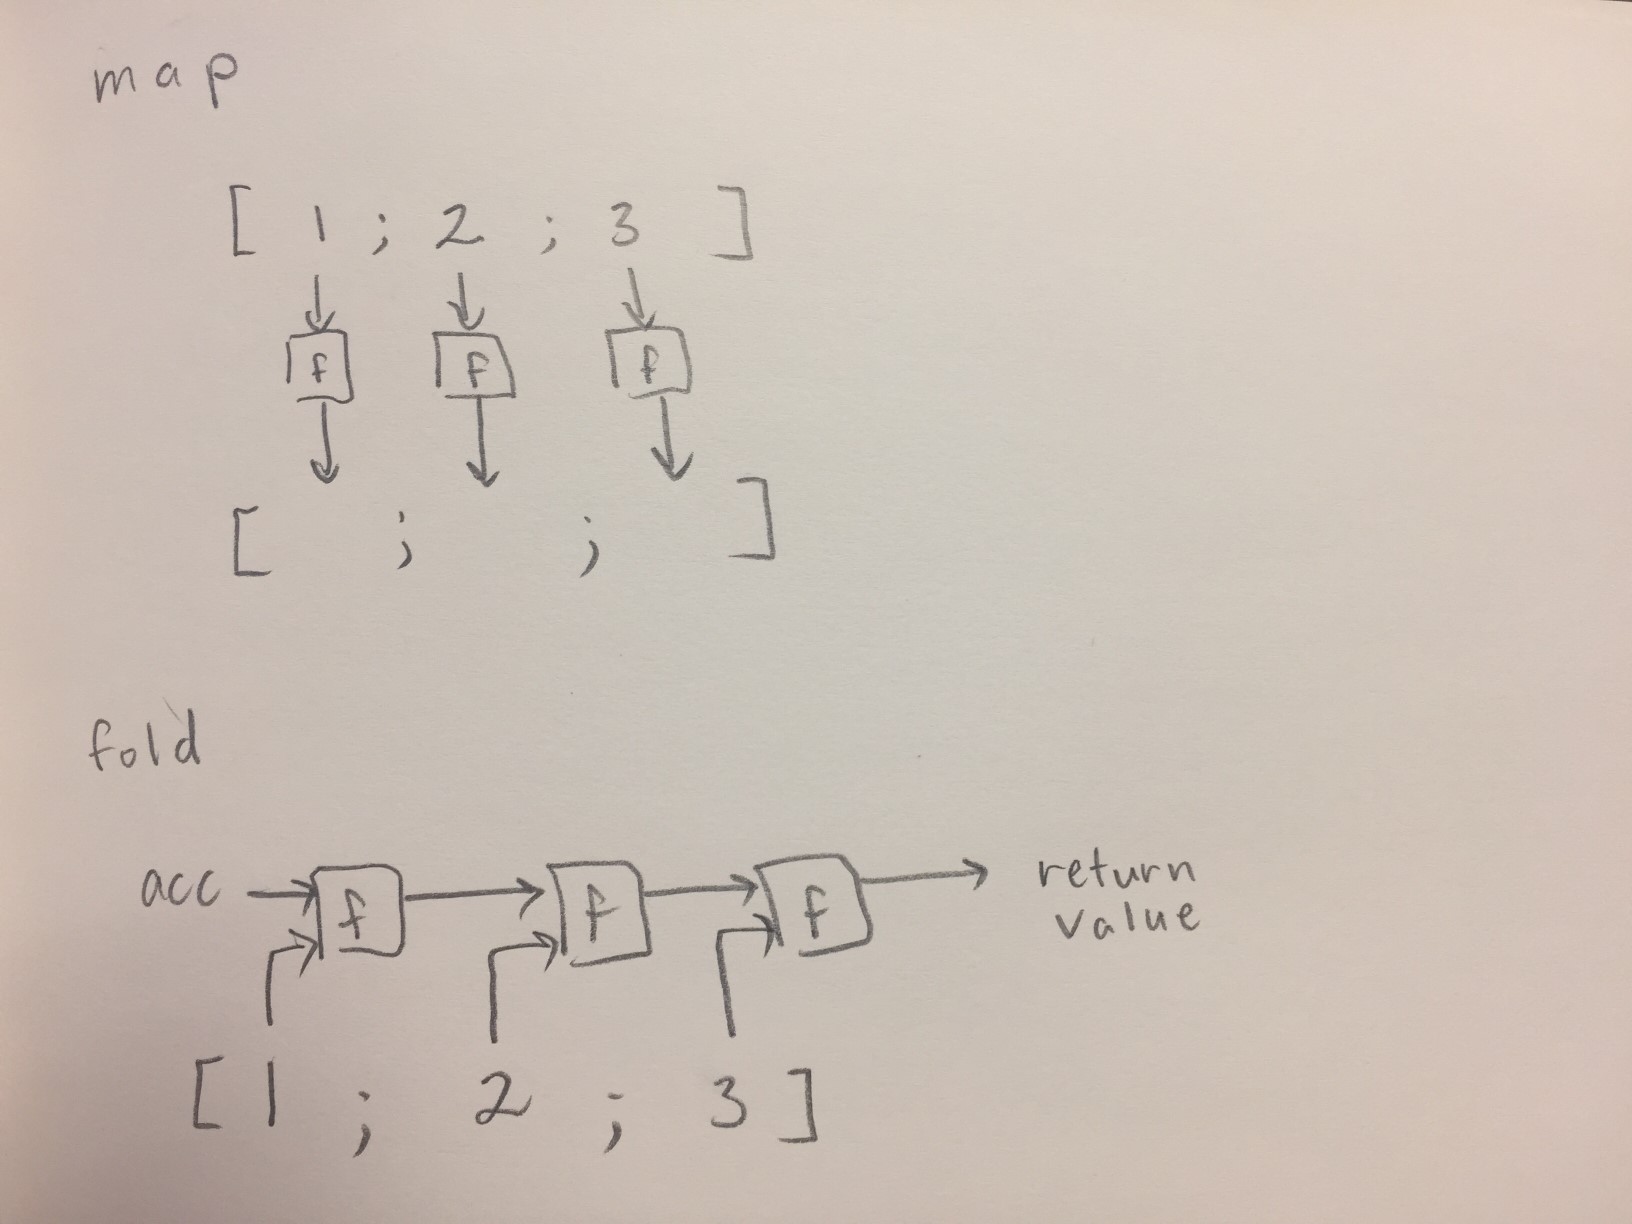 map
[ 1 ; 2 ; 3 ]
f f f
[ ; ; ]
fold
acc f f f return
value
[ 1 ; 2 ; 3 ]